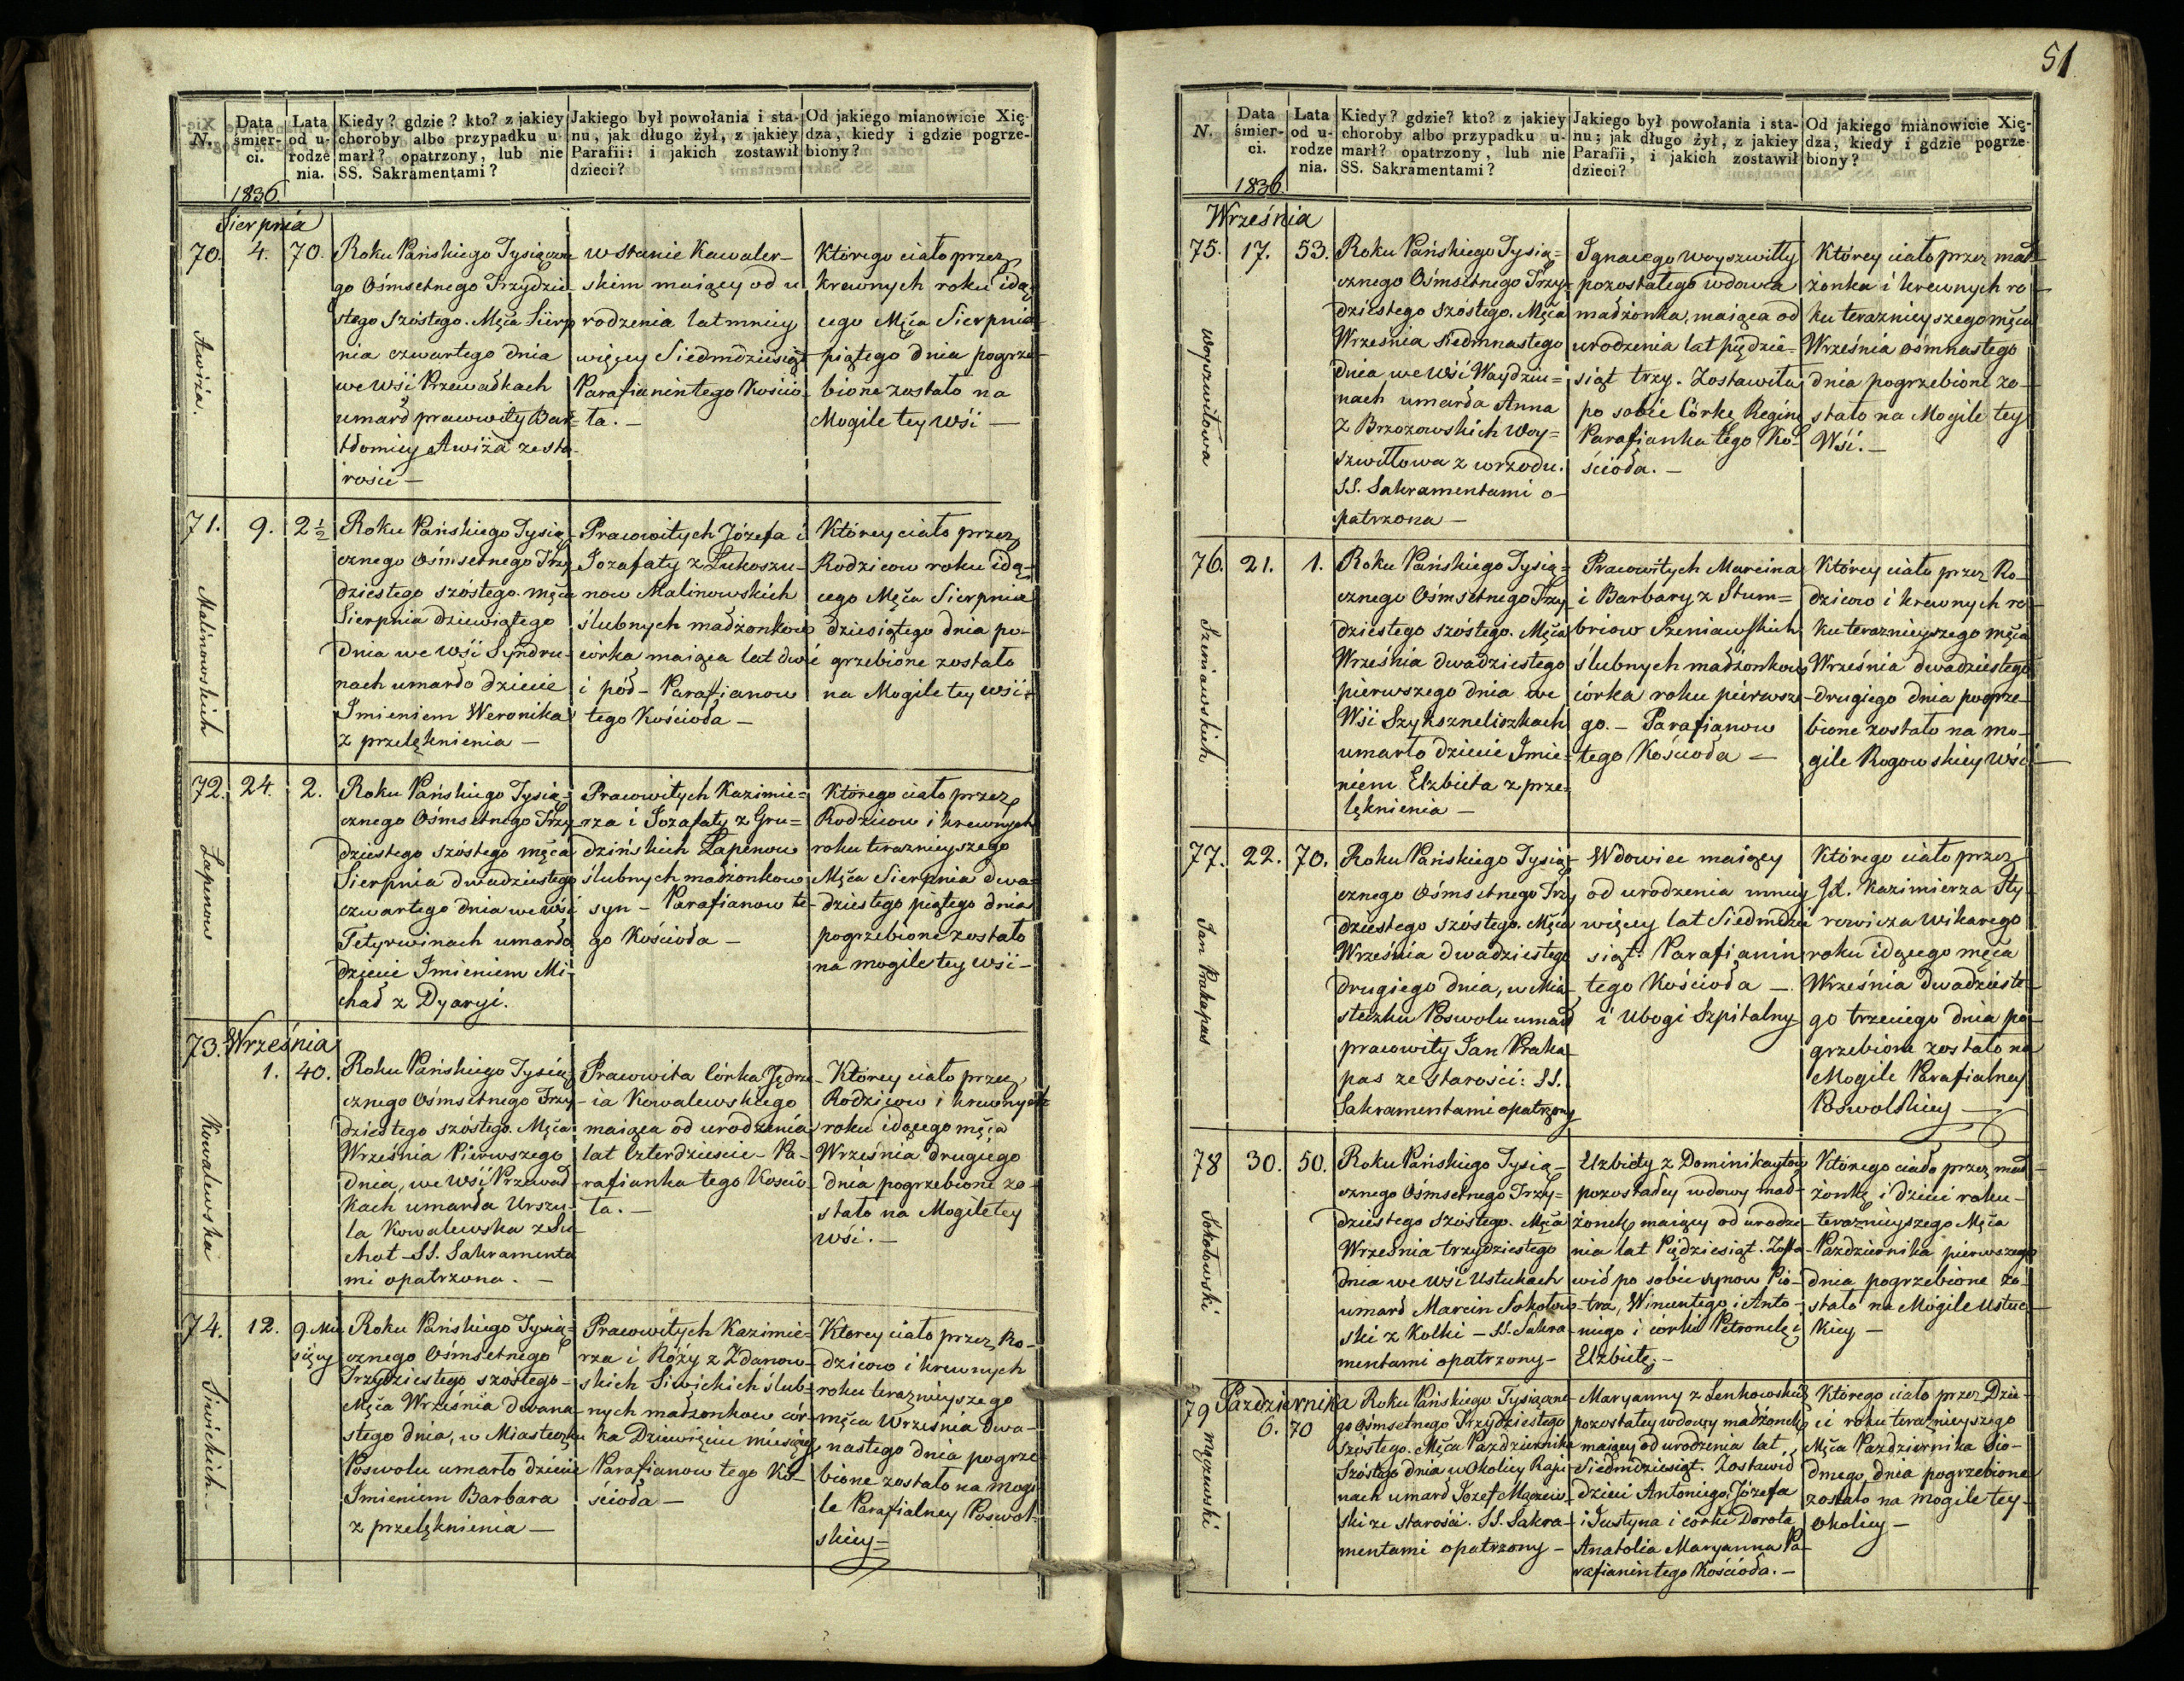 N.
Data śmier-
ci.
Lata
od u-
rodze
nia.
Kiedy? gdzie? kto? z jakiey
choroby albo przypadku u-
marł? opatrzony, lub nie
SS. Sakramentami?
Jakiego był powołania i sta-
nu, jak długo żył, z jakiey
Parafii: i jakich zostawił
dzieci?
Od jakiego mianowicie Xię-
dza, kiedy i gdzie pogrze-
biony?
1836
Sierpnia
70. 4. 70.
Awiża.
Roku Pańskiego Tysiączne
go Ośmsetnego Trzydzie
stego Szóstego. Mca Sierp
nia czwartego dnia
we Wsi Przewałkach
umarł pracowity Bar-
tłomiey Awiża ze sta-
rości —
w stanie Kawaler-
skim maiący od u
rodzenia lat mniey
więcey Siedmdziesiąt
Parafianin tego Kościo
ła. —
Którego ciało przez
krewnych roku idą
cego Mca Sierpnia
piątego dnia pogrze-
bione zostało na
Mogile tey Wsi —
71. 9. 2 1/2
Malinowskich
Roku Pańskiego Tysią-
cznego Ośmsetnego Trzy
dziestego szóstego mca
Sierpnia dziewiątego
dnia we Wsi Syndru-
nach umarło dziecie
Imieniem Weronika
z przelęknienia —
Pracowitych Józefa i
Jozafaty z Lukoszu-
now Malinowskich
ślubnych małżonkow
córka maiąca lat dwie
i pół — Parafianow
tego Kościoła —
Którey ciało przez
Rodzicow roku idą-
cego Mca Sierpnia
dziesiątego dnia po-
grzebione zostało
na Mogile tey wsi.
72. 24. 2.
Łapenow
Roku Pańskiego Tysią-
cznego Ośmsetnego Trzy
dziestego szóstego mca
Sierpnia dwadziestego
czwartego dnia we wsi
Tetyrwinach umarło
dziecie Imieniem Mi-
chał z Dyaryi.
Pracowitych Kazimie-
rza i Jozafaty z Gru-
dzińskich Łapenow
ślubnych małżonkow
syn — Parafianow te-
go Kościoła —
Którego ciało przez
Rodzicow i krewnych
roku teraznieyszego
Mca Sierpnia dwa-
dziestego piątego dnia
pogrzebione zostało
na mogile tey wsi —
Września
73. 1. 40.
Kowalewska
Roku Pańskiego Tysią-
cznego Ośmsetnego Trzy-
dziestego szóstego. Mca
Września Pierwszego
dnia, we Wsi Przewał-
kach umarła Urszu-
la Kowalewska z Su-
chot — SS. Sakramenta
mi opatrzona. —
Pracowita Córka Jędrze-
ia Kowalewskiego
maiąca od urodzenia
lat Czterdzieście — Pa-
rafianka tego Kościo-
ła. —
Którey ciało przez
Rodzicow i krewnych
roku idącego mca
Września drugiego
dnia pogrzebione zo-
stało na Mogile tey
wsi. —
74. 12. 9. Mie
sięcy
Siwickich
Roku Pańskiego Tysią-
cznego Ośmsetnego
Trzydziestego szóstego —
Mca Września dwana-
stego dnia, w Miasteczku
Poswolu umarło dziecie
Imieniem Barbara
z przelęknienia —
Pracowitych Kazimie-
rza i Róży z Zdanow-
skich Siwickich ślub-
nych małżonkow cór-
ka Dziewięciu miesięcy
Parafianow tego Ko-
ścioła —
Którey ciało przez Ro-
dzicow i krewnych
roku teraznieyszego
mca Września dwa-
nastego dnia pogrze-
bione zostało na mogi
le Parafialney Poswol-
skiey =
51
N.
Data
śmier-
ci.
Lata
od u-
rodze
nia.
Kiedy? gdzie? kto? z jakiey
choroby albo przypadku u-
marł? opatrzony, lub nie
SS. Sakramentami?
Jakiego był powołania i sta-
nu; jak długo żył, z jakiey
Parafii, i jakich zostawił
dzieci?
Od jakiego mianowicie Xię-
dza, kiedy i gdzie pogrze-
biony?
1836.
Września
75. 17. 53.
Woyszwiłowa
Roku Pańskiego Tysią-
cznego Ośmsetnego Trzy-
dziestego szóstego. Mca
Września siedmnastego
dnia we Wsi Waydziu-
nach umarła Anna
z Brzozowskich Woy-
szwiłłowa z wrzodu.
SS. Sakramentami o-
patrzona —
Ignacego Woyszwiłły
pozostałego wdowca
małżonka, maiąca od
urodzenia lat pięćdzie-
siąt trzy. Zostawiła
po sobie Córkę Reginę
Parafianka tego Ko-
ścioła. —
Którey ciało przez mał-
żonka i krewnych ro-
ku teraznieyszego mca
Września ośmnastego
dnia pogrzebione zo-
stało na Mogile tey
Wsi. —
76. 21. 1.
Szeniawskich
Roku Pańskiego Tysią-
cznego Ośmsetnego Trzy
dziestego szóstego. Mca
Września dwadziestego
pierwszego dnia we
Wsi Szykszneliszkach
umarło dziecie Imie-
niem Elzbieta z prze-
lęknienia —
Pracowitych Marcina
i Barbary z Stum-
briow Szeniawskich
ślubnych małżonkow
córka roku pierwsze-
go. — Parafianow
tego Kościoła —
Którey ciało przez Ro-
dzicow i krewnych ro-
ku teraznieyszego mca
Września dwadziestego
drugiego dnia pogrze-
bione zostało na mo-
gile Rogowskiey Wsi —
77. 22. 70.
Jan Prakapas
Roku Pańskiego Tysią-
cznego Ośmsetnego Trzy
dziestego szóstego. Mca
Września dwadziestego
drugiego dnia, w Mia-
steczku Poswolu umarł
pracowity Jan Praka-
pas ze starości: SS.
Sakramentami opatrzony
Wdowiec maiący
od urodzenia mniey
więcey lat Siedmdzie
siąt Parafianin
tego Kościoła —
i Ubogi Szpitalny
Którego ciało przez
Jd. Kazimierza Sty-
rowicza Wikarego
roku idącego mca
Września dwadzieste-
go trzeciego dnia po-
grzebione zostało na
Mogile Parafialney
Poswolskiey —
78 30. 50.
Sokołowski
Roku Pańskiego Tysią-
cznego Ośmsetnego Trzy-
dziestego szóstego. Mca
Września trzydziestego
dnia we Wsi Ustukach
umarł Marcin Sokołow-
ski z Kolki — SS. Sakra-
mentami opatrzony —
Elzbiety z Dominikaytow
pozostałey wdowy mał-
żonek maiący od urodze-
nia lat Pięćdziesiąt. Zosta-
wił po sobie synow Pio-
tra, Wincentego i Anto-
niego i córki Petronelę i
Elzbietę. —
Którego ciało przez mał-
żonkę i dzieci roku —
teraznieyszego Mca
Pazdziernika pierwszego
dnia pogrzebione zo-
stało na Mogile Ustuc-
kiey —
Pazdziernika
79 6. 70
Mączewski
Roku Pańskiego Tysiączne-
go Ośmsetnego Trzydziestego
szóstego. Mca Pazdziernika
Szóstego dnia w Okolicy Raju-
nach umarł Jozef Mączew-
ski ze starości. SS. Sakra-
mentami opatrzony —
Maryanny z Lenkowskich
pozostałey wdowy małżonek
maiący od urodzenia lat
Siedmdziesiąt. Zostawił
dzieci Antoniego, Józefa
i Justyna i córki Dorota
Anatolia Maryanna Pa-
rafianin tego Kościoła. —
Którego ciało przez Dzie-
ci roku teraznieyszego
Mca Pazdziernika Sio-
dmego dnia pogrzebione
zostało na mogile tey
Okolicy —